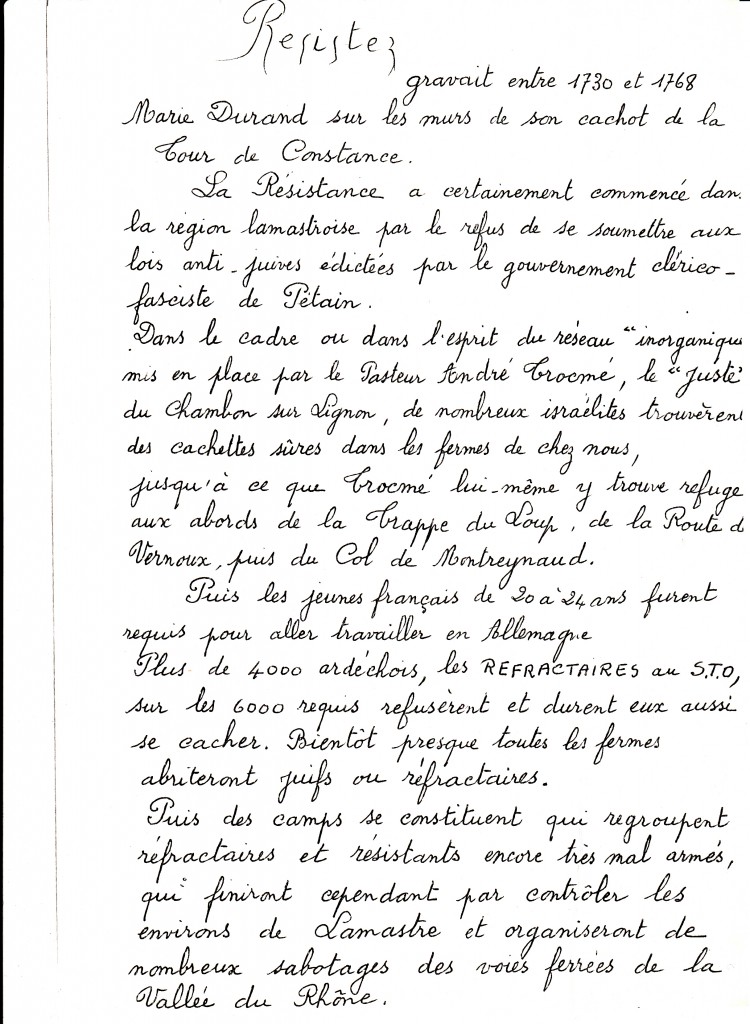 Resistez
gravait entre 1730 et 1768
Marie Durand sur les murs de son cachot de la
Tour de Constance.
La Résistance a certainement commencé dan
la région lamastroise par le refus de se soumettre aux
lois anti-juives édictées par le gouvernement clérico-
fasciste de Pétain.
Dans le cadre ou dans l'esprit du réseau "inorganique
mis en place par le Pasteur André Trocmé, le "Juste"
du Chambon sur Lignon, de nombreux israélites trouvèrent
des cachettes sûres dans les fermes de chez nous,
jusqu'à ce que Trocmé lui-même y trouve refuge
aux abords de la Trappe du Loup, de la Route d
Vernoux, puis du Col de Montreynaud.
Puis les jeunes français de 20 à 24 ans furent
requis pour aller travailler en Allemagne
Plus de 4000 ardéchois, les REFRACTAIRES au S.T.O,
sur les 6000 requis refusèrent et durent eux aussi
se cacher. Bientôt presque toutes les fermes
abriteront juifs ou réfractaires.
Puis des camps se constituent qui regroupent
réfractaires et résistants encore très mal armés,
qui finiront cependant par contrôler les
environs de Lamastre et organiseront de
nombreux sabotages des voies ferrées de la
Vallée du Rhône.